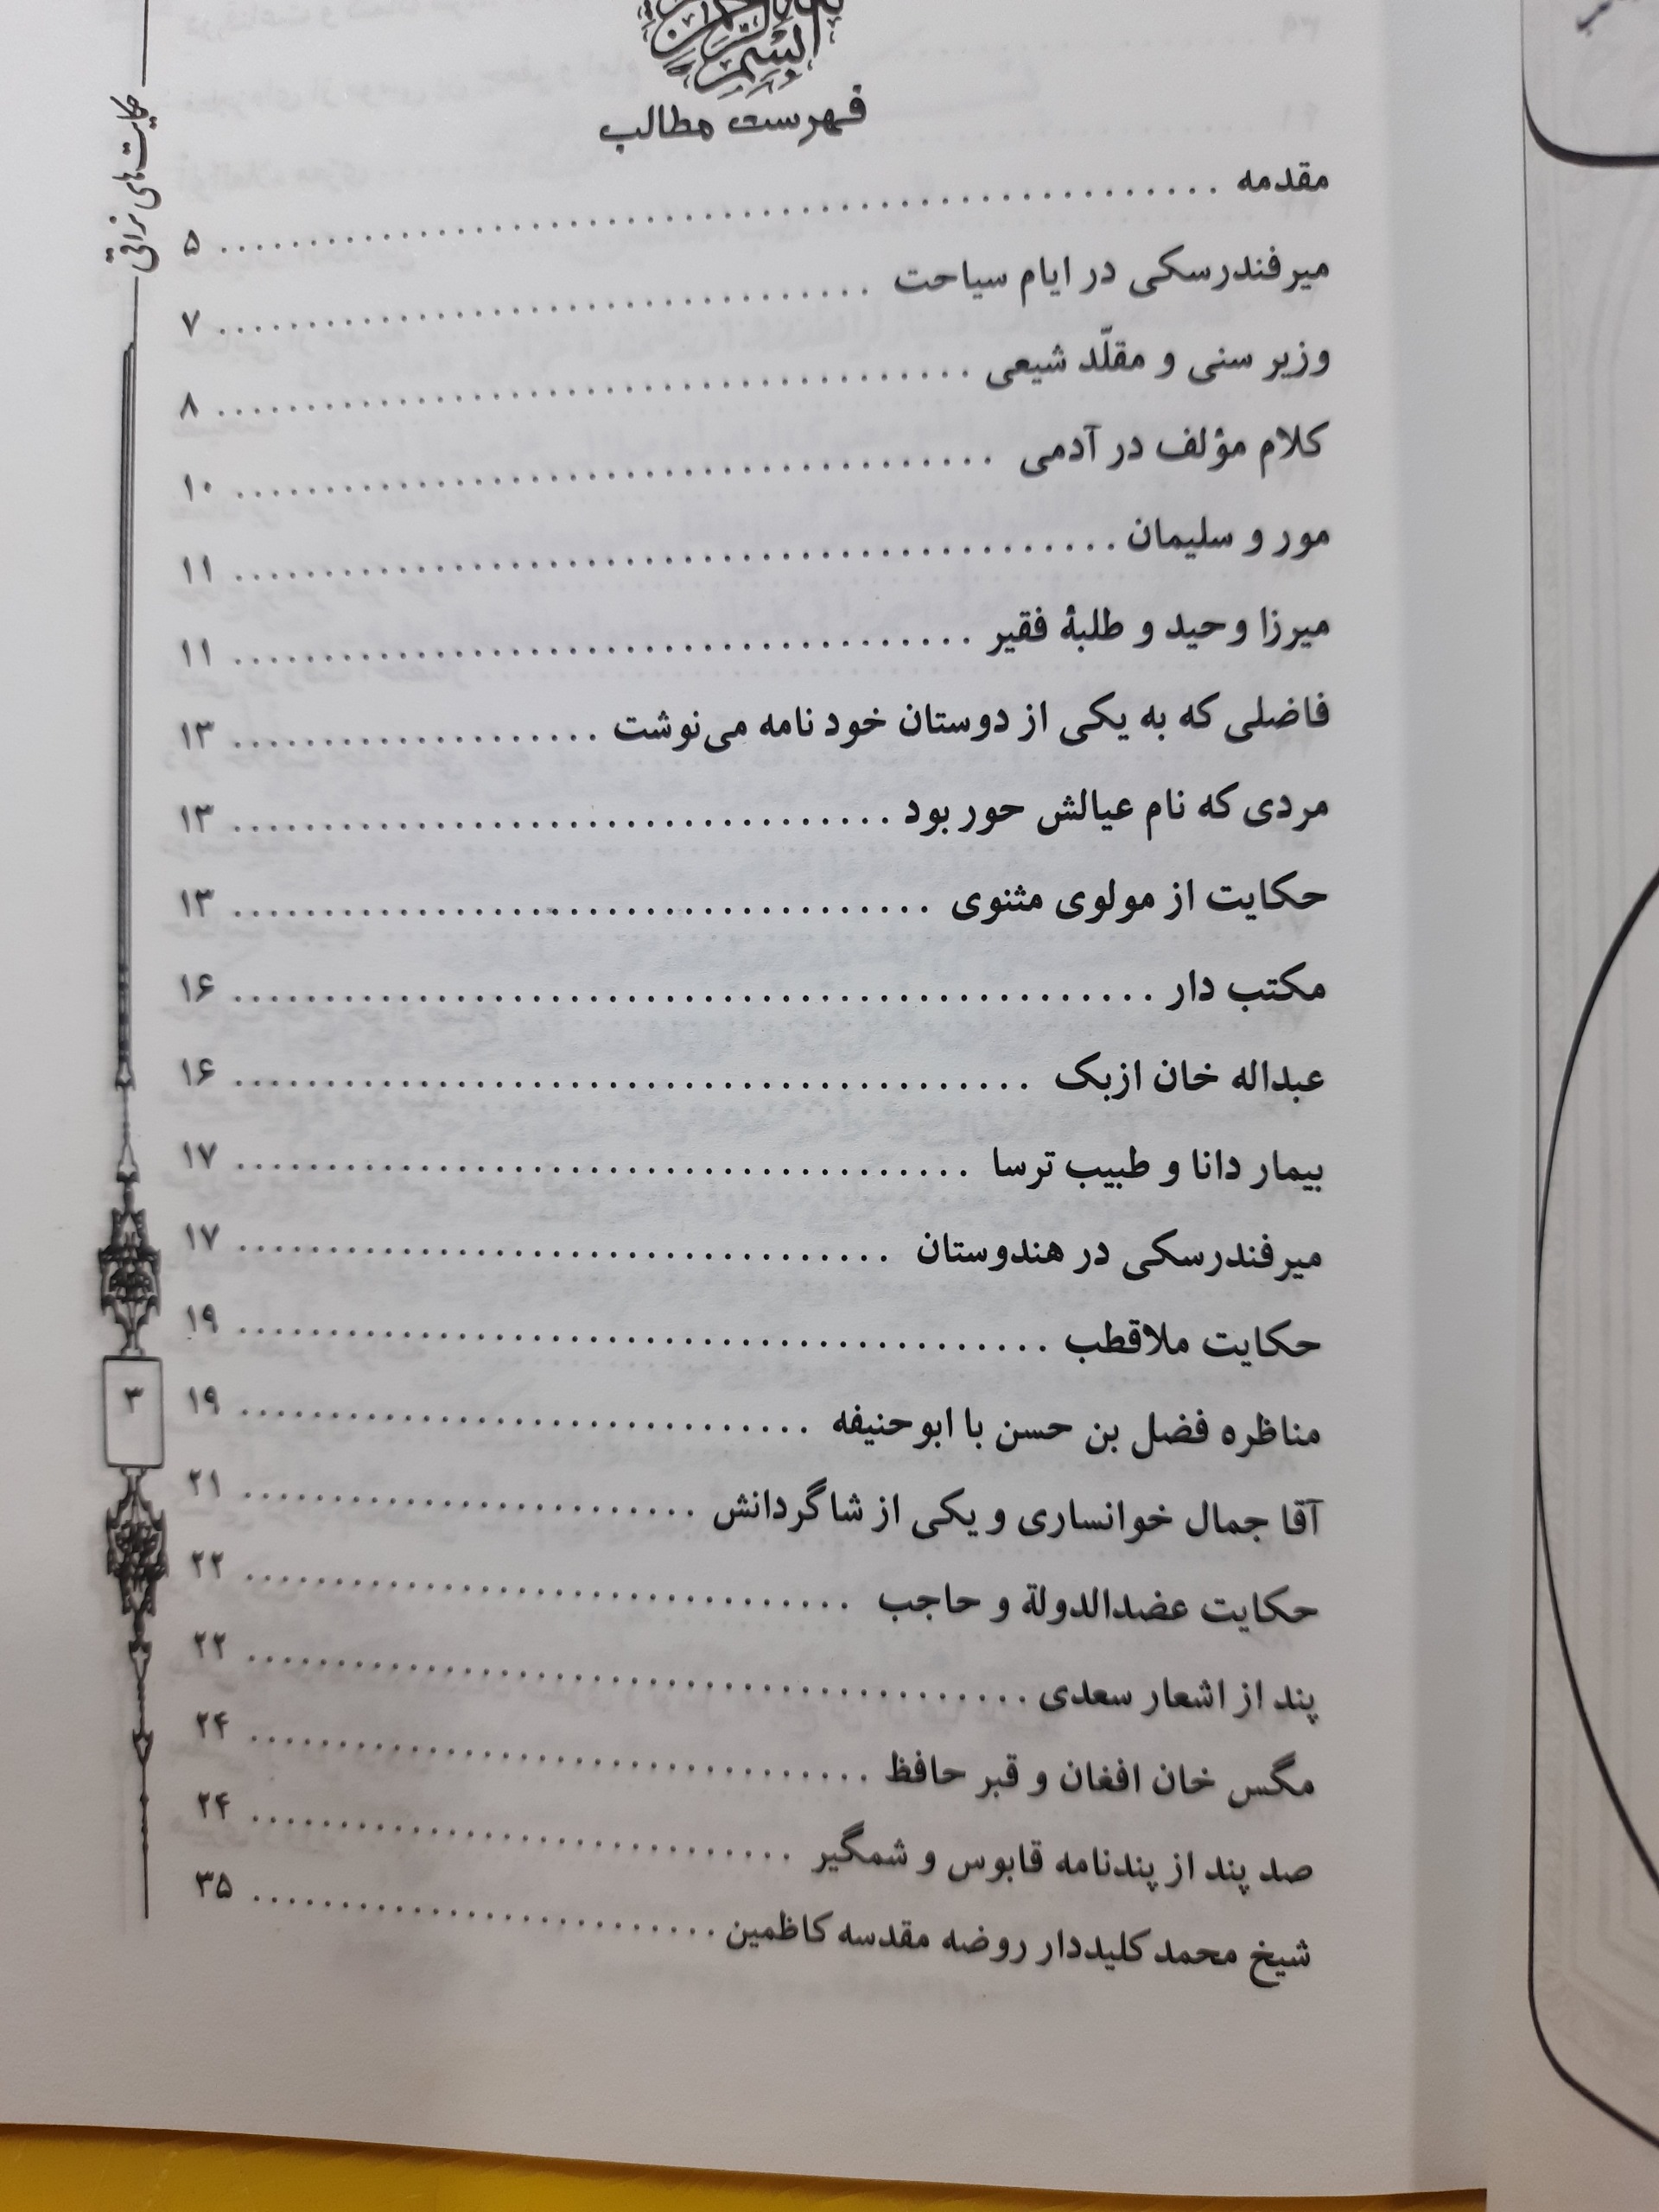 فهرست مطالب
مقدمه ........ ۵
میرفندرسکی در ایام سیاحت ........ ۷
وزیر سنی و مقلّد شیعی ........ ۸
کلام مؤلف در آدمی ........ ۱۰
مور و سلیمان ........ ۱۱
میرزا وحید و طلبهٔ فقیر ........ ۱۱
فاضلی که به یکی از دوستان خود نامه می‌نوشت ........ ۱۳
مردی که نام عیالش حور بود ........ ۱۳
حکایت از مولوی مثنوی ........ ۱۳
مکتب دار ........ ۱۶
عبداله خان ازبک ........ ۱۶
بیمار دانا و طبیب ترسا ........ ۱۷
میرفندرسکی در هندوستان ........ ۱۷
حکایت ملاقطب ........ ۱۹
مناظره فضل بن حسن با ابوحنیفه ........ ۱۹
آقا جمال خوانساری و یکی از شاگردانش ........ ۲۱
حکایت عضدالدولة و حاجب ........ ۲۲
پند از اشعار سعدی ........ ۲۲
مگس خان افغان و قبر حافظ ........ ۲۴
صد پند از پندنامه قابوس و شمگیر ........ ۲۴
شیخ محمد کلیددار روضه مقدسه کاظمین ........ ۳۵
حکایت‌های نراقی
۳